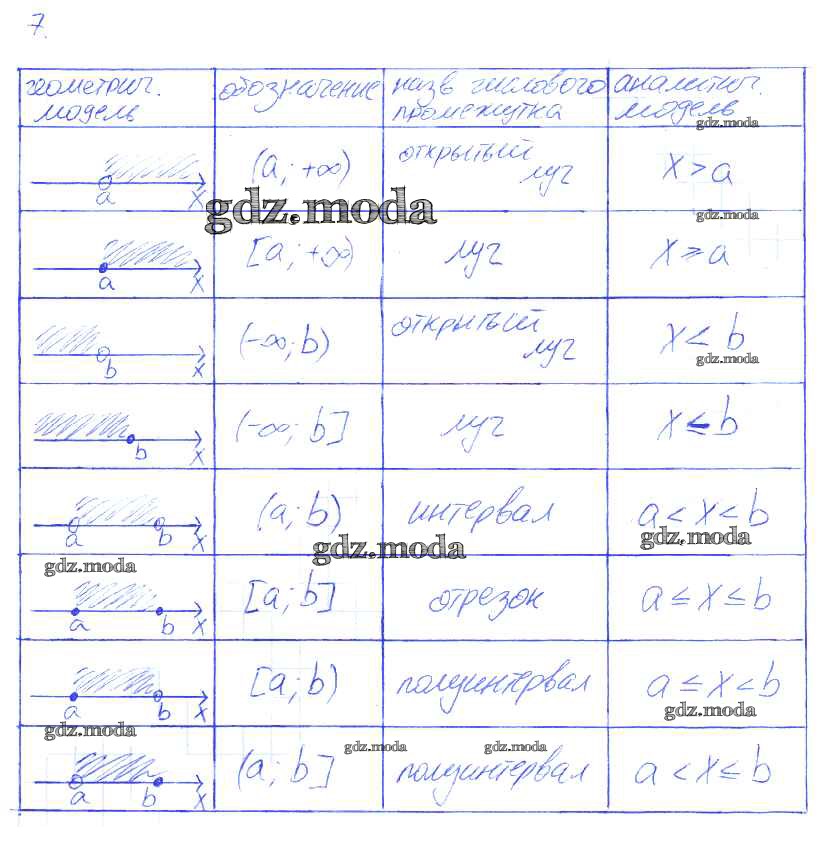 7.
геометрич. модель обозначение назв числового промежутка аналитич. модель
gdz.moda
a x (a; +∞) открытый луч x > a
gdz.moda
gdz.moda
a x [a; +∞) луч x ≥ a
b x (-∞; b) открытый луч x < b
gdz.moda
b x (-∞; b] луч x ≤ b
a b x (a; b) интервал a < x < b
gdz.moda
gdz.moda
gdz.moda
a b x [a; b] отрезок a ≤ x ≤ b
a b x [a; b) полуинтервал a ≤ x < b
gdz.moda
gdz.moda
gdz.moda
gdz.moda
a b x (a; b] полуинтервал a < x ≤ b